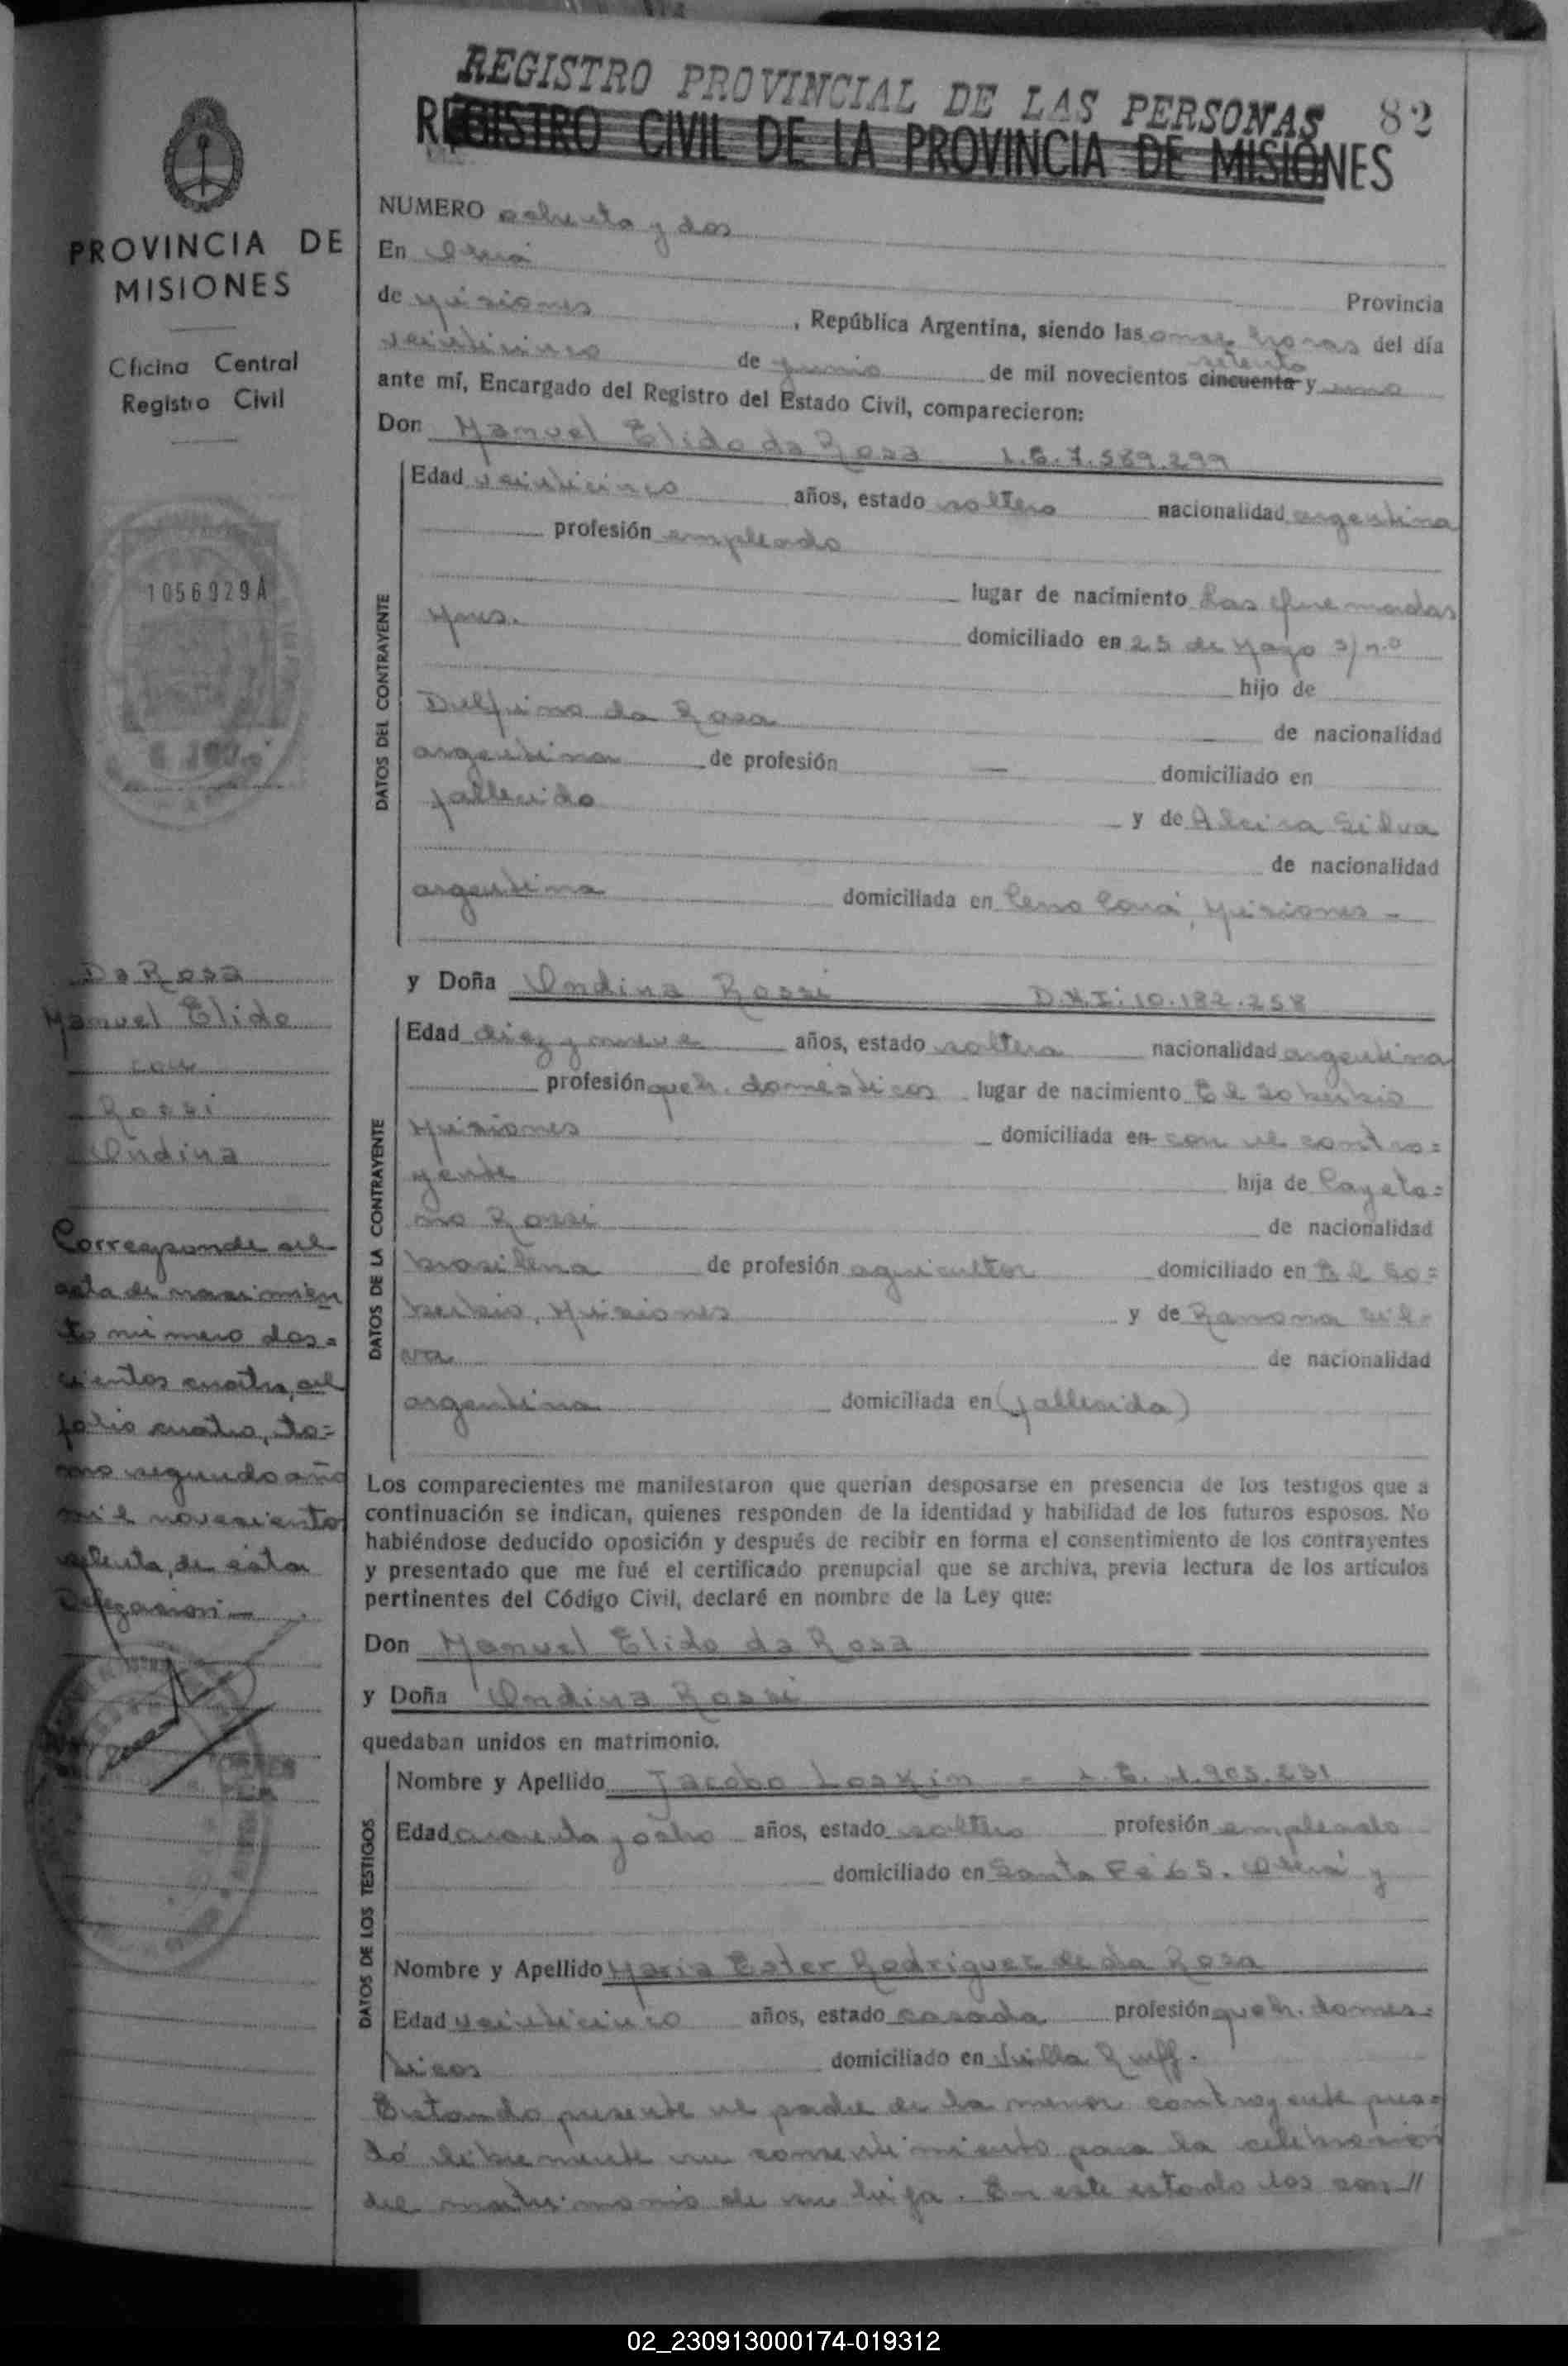 REGISTRO PROVINCIAL DE LAS PERSONAS 82
REGISTRO CIVIL DE LA PROVINCIA DE MISIONES
PROVINCIA DE
MISIONES
Oficina Central
Registro Civil
1056929A
Da Rosa
Manuel Elido
con
Rossi
Ondina
Corresponde al
acta de nacimien
to número dos=
cientos cuatro, al
folio cuatro, to=
mo segundo año
mil novecientos
setenta, de esta
Delegación.—
NUMERO ochenta y dos
En Oberá
Provincia
de Misiones, República Argentina, siendo las once horas del día
veinticinco de junio de mil novecientos cincuenta setenta y uno
ante mí, Encargado del Registro del Estado Civil, comparecieron:
Don Manuel Elido da Rosa L.E. 7.589.299
DATOS DEL CONTRAYENTE
Edad veinticinco años, estado soltero nacionalidad argentina
profesión empleado
lugar de nacimiento Las Quemadas
Mnes. domiciliado en 25 de Mayo s/n.º
hijo de
Delfino da Rosa de nacionalidad
argentina de profesión — domiciliado en
fallecido y de Alcira Silva
de nacionalidad
argentina domiciliada en Cerro Corá, Misiones –
y Doña Ondina Rossi D.N.I: 10.182.258
DATOS DE LA CONTRAYENTE
Edad diez y nueve años, estado soltera nacionalidad argentina
profesión queh. domésticos lugar de nacimiento El Soberbio
Misiones domiciliada en con el contra=
yente hija de Cayeta=
no Rossi de nacionalidad
brasilena de profesión agricultor domiciliado en El So=
berbio, Misiones y de Ramona Sil=
va de nacionalidad
argentina domiciliada en (fallecida)
Los comparecientes me manifestaron que querían desposarse en presencia de los testigos que a
continuación se indican, quienes responden de la identidad y habilidad de los futuros esposos. No
habiéndose deducido oposición y después de recibir en forma el consentimiento de los contrayentes
y presentado que me fué el certificado prenupcial que se archiva, previa lectura de los artículos
pertinentes del Código Civil, declaré en nombre de la Ley que:
Don Manuel Elido da Rosa
y Doña Ondina Rossi
quedaban unidos en matrimonio.
DATOS DE LOS TESTIGOS
Nombre y Apellido Jacobo Loskin - L.E. 1.905.231
Edad cuarenta y ocho años, estado soltero profesión empleado
domiciliado en Santa Fe 65. Oberá y
Nombre y Apellido Maria Ester Rodriguez de da Rosa
Edad veinticinco años, estado casada profesión queh. domes=
ticos domiciliado en Villa Ruff.
Estando presente el padre de la menor contrayente pres=
tó libremente su consentimiento para la celebración
del matrimonio de su hija. En este estado los con//
02_230913000174-019312